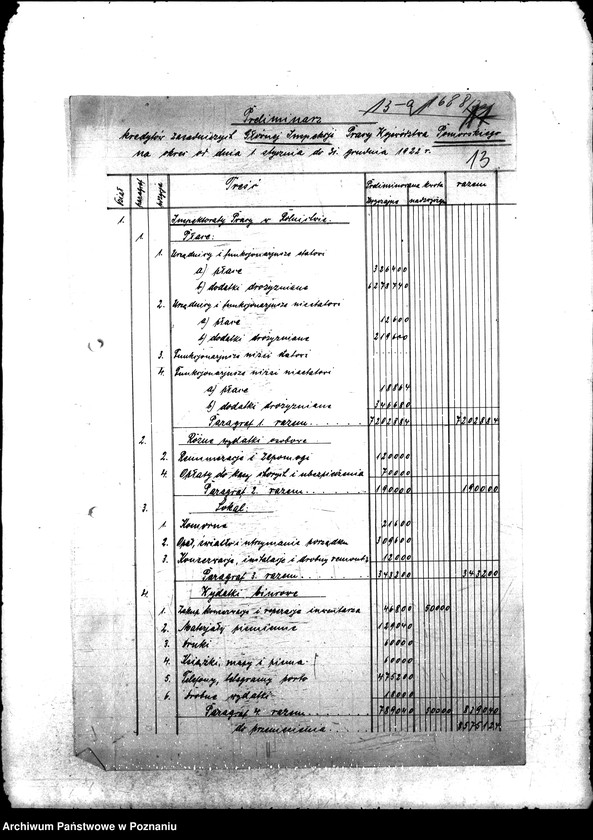 13-a 1688
Preliminarz
kredytów zasadniczych Głównej Inspekcji Pracy Województwa Pomorskiego
na okres od dnia 1 stycznia do 31 grudnia 1922 r.
13
Dział paragraf pozycja Treść Preliminowana kwota razem
zwyczajna nadzwyczaj.
1. Inspektoraty Pracy w Rolnictwie.
1. Płace:
1. Urzędnicy i funkcjonarjusze etatowi
a) płace 326400
b) dodatki drożyźniane 6278740
2. Urzędnicy i funkcjonarjusze nieetatowi
a) płace 12600
b) dodatki drożyźniane 219600
3. Funkcjonarjusze niżsi etatowi
4. Funkcjonarjusze niżsi nieetatowi
a) płace 18864
b) dodatki drożyźniane 346680
Paragraf 1. razem 7202884 7202884
2. Różne wydatki osobowe
2. Remuneracja i zapomogi 120000
4. Opłaty do kasy chorych i ubezpieczenia 70000
Paragraf 2. razem 190000 190000
3. Lokal:
1. Komorne 21600
2. Opał, światło i utrzymanie porządku 309600
3. Konserwacja, instalacje i drobny remont 12000
Paragraf 3. razem 343200 343200
4. Wydatki biurowe
1. Zakup konserwacja i reperacja inwentarza 46800 50000
2. Materjały piśmienne 129040
3. Druki 60000
4. Książki, mapy i pisma 60000
5. Telefony, telegramy porto 475200
6. Drobne wydatki 18000
Paragraf 4. razem 789040 50000 839040
do przeniesienia 8575124
Archiwum Państwowe w Poznaniu